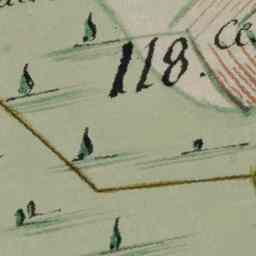 118. Ce